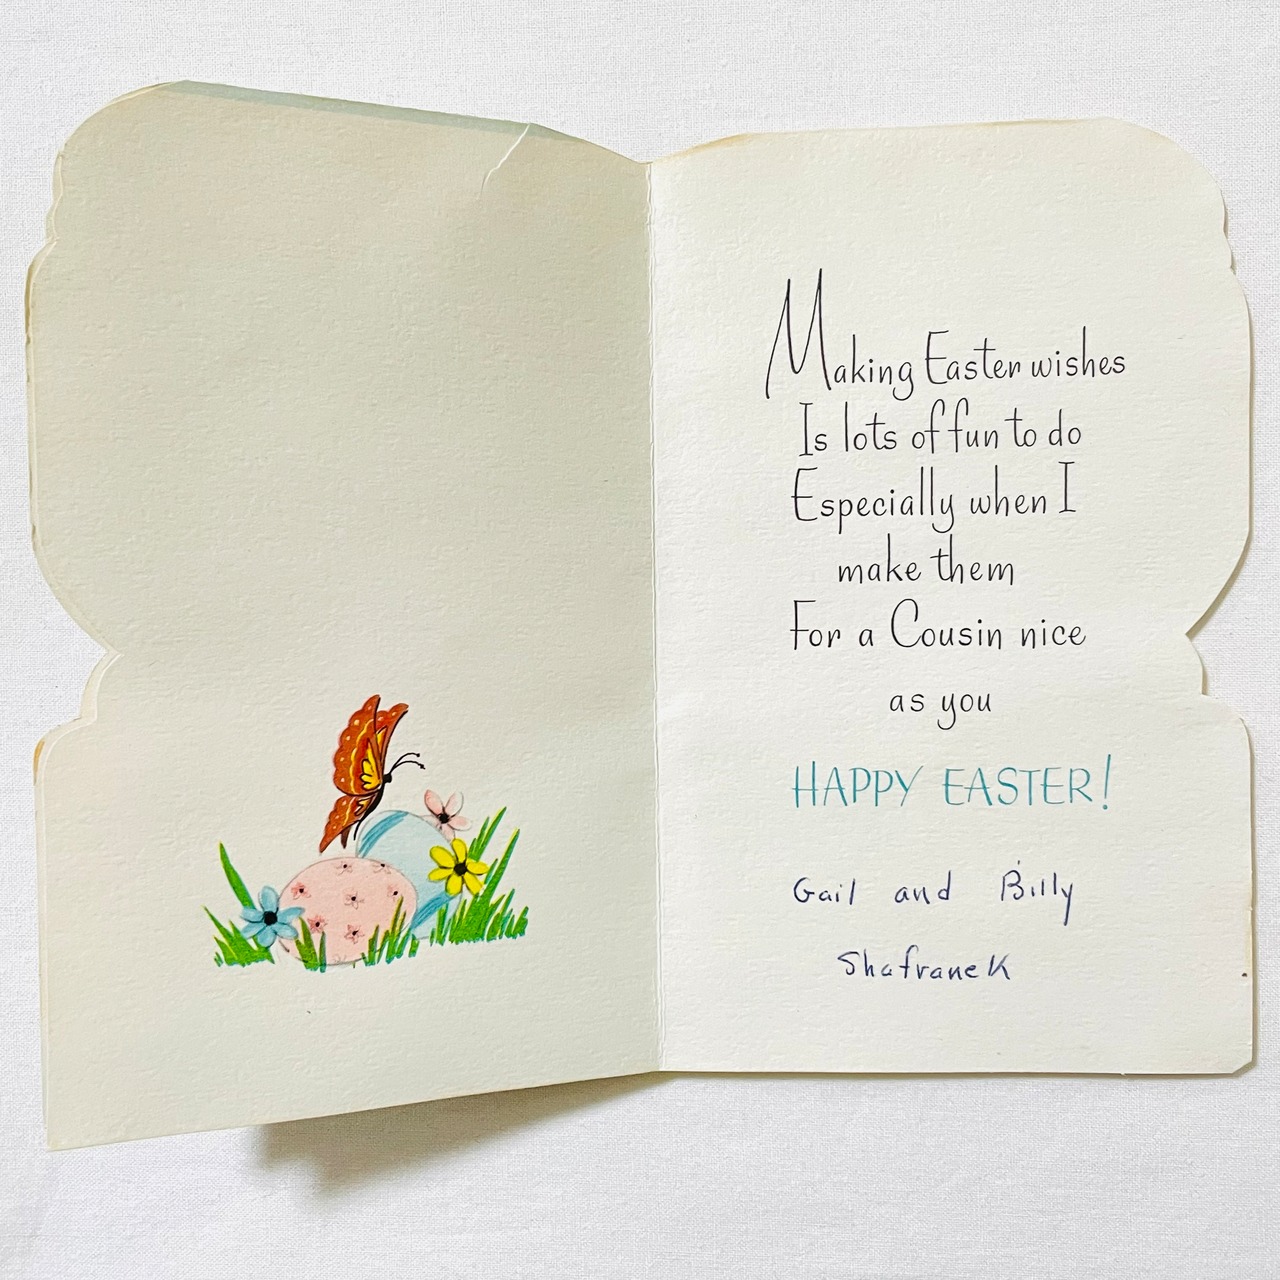 Making Easter wishes
Is lots of fun to do
Especially when I
make them
For a Cousin nice
as you
HAPPY EASTER!
Gail and Billy
Shafranek